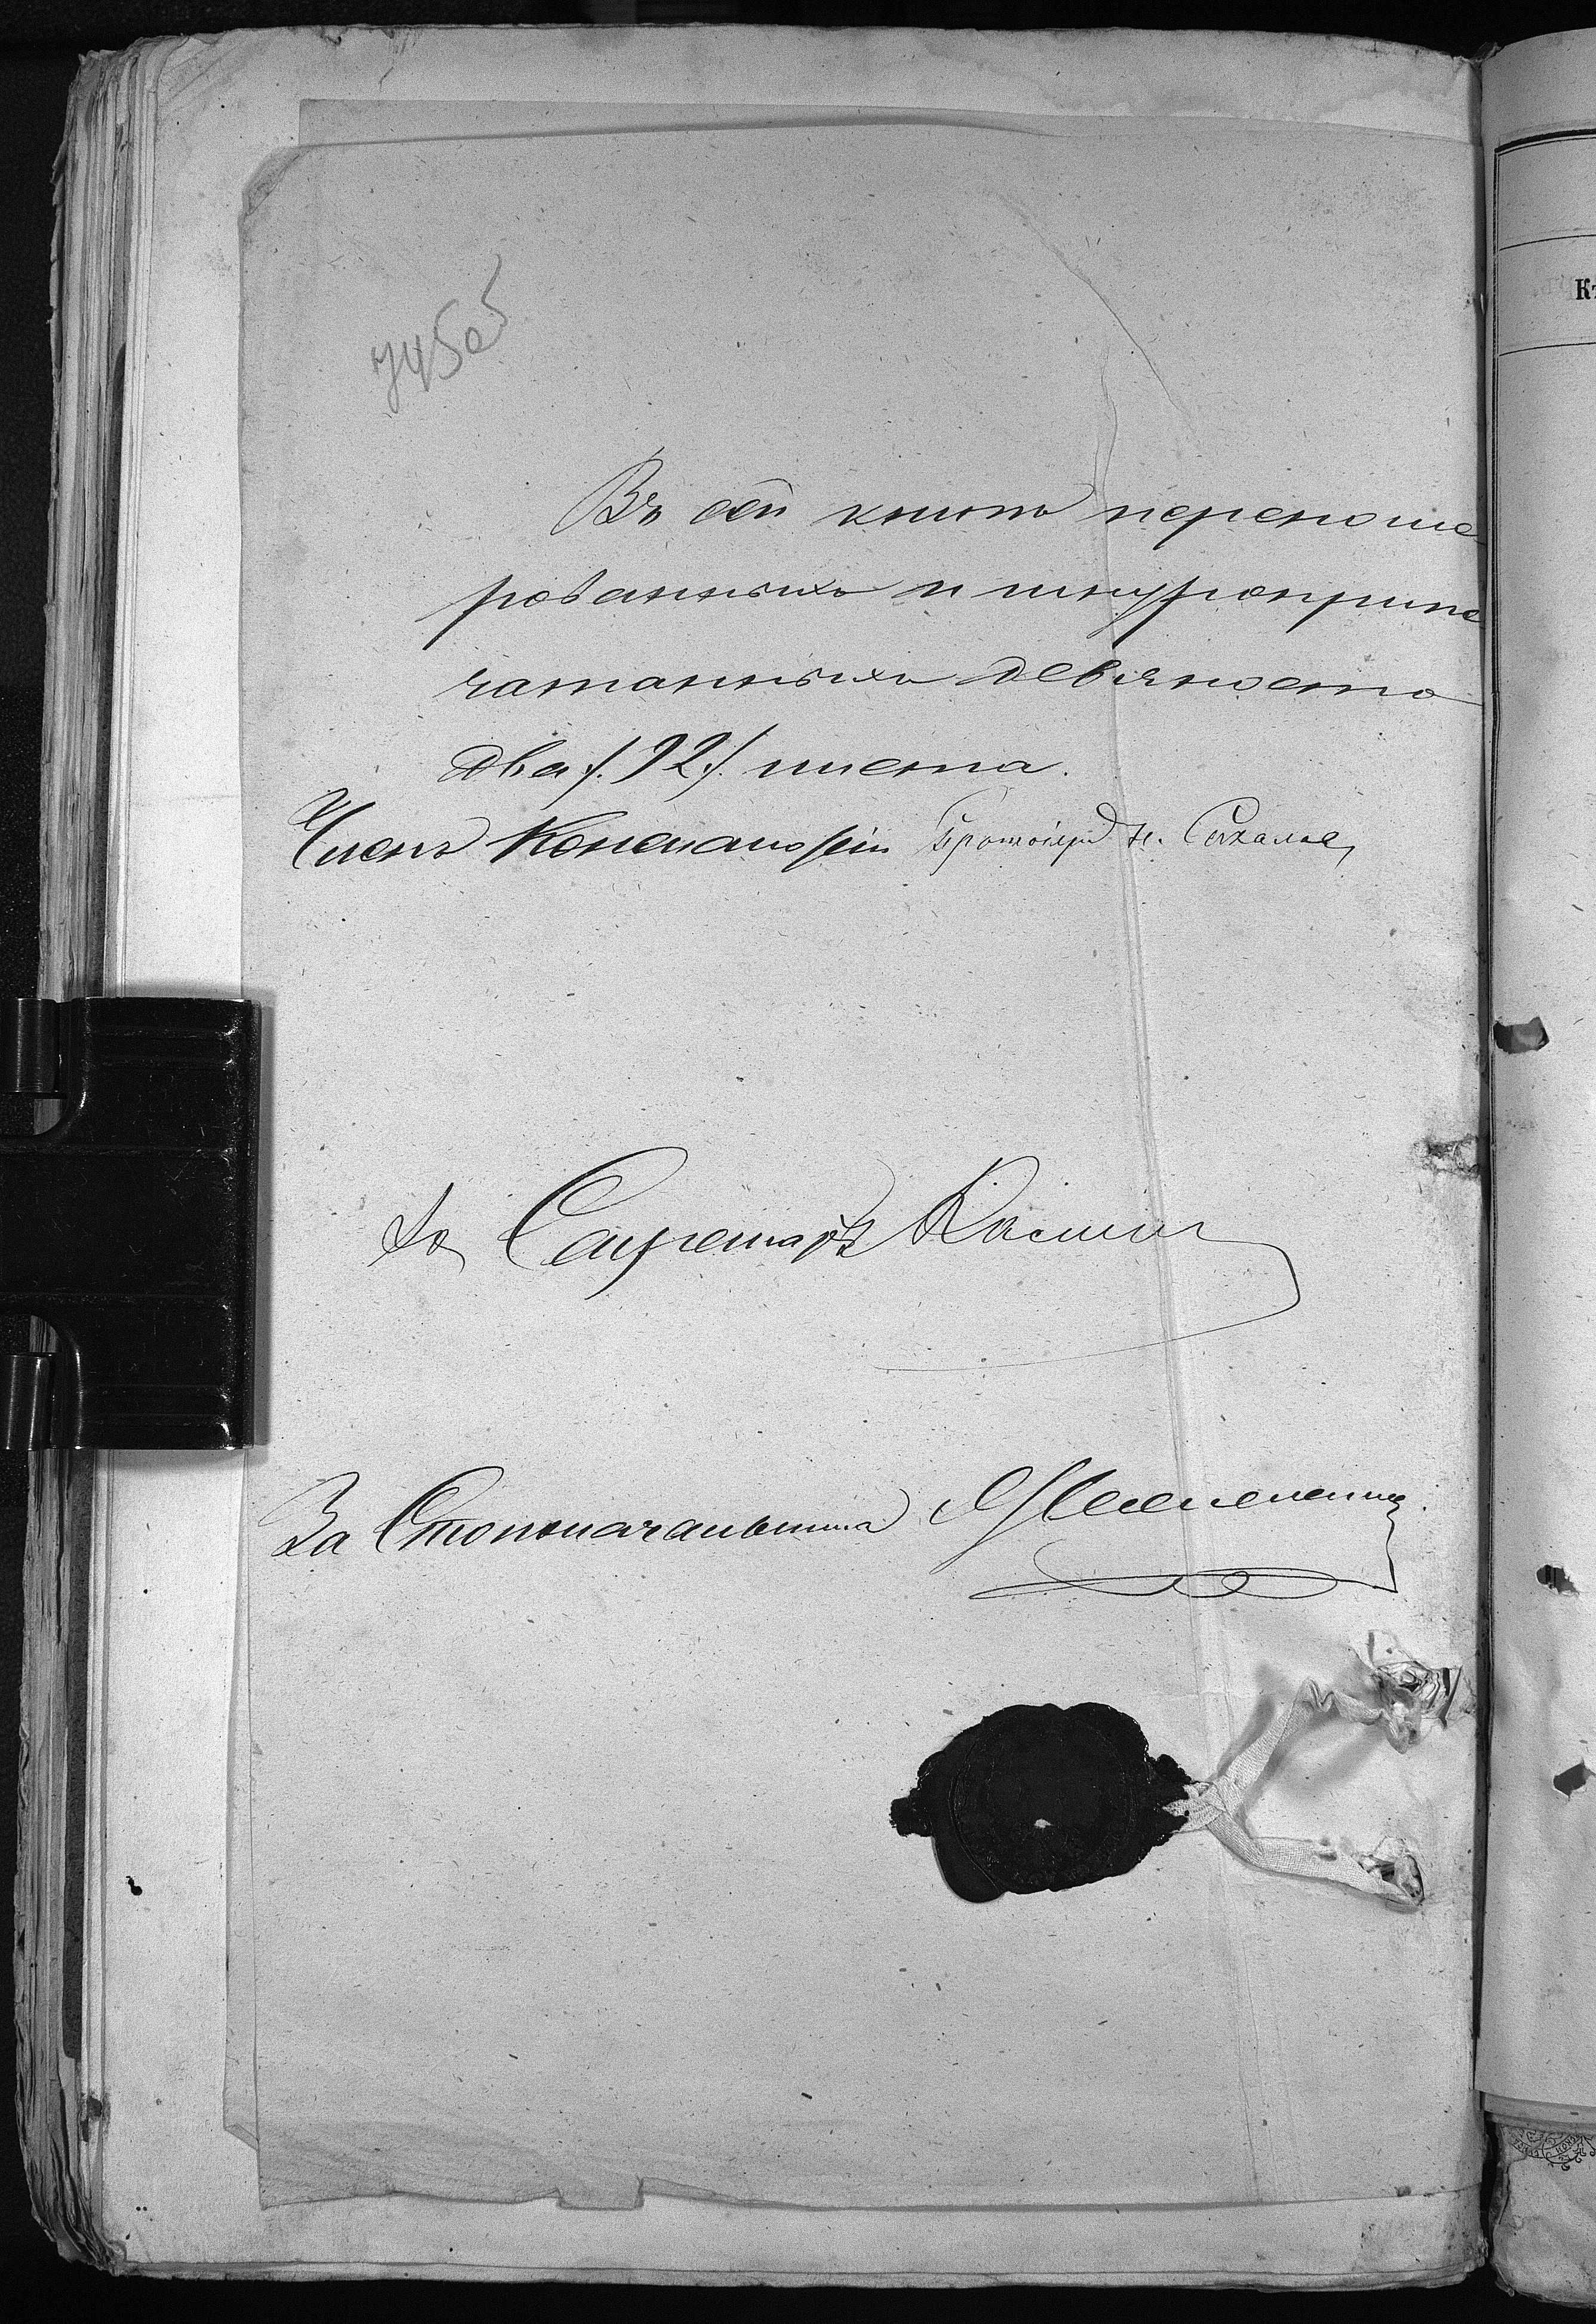 745об
Въ сей книгѣ перенуме
рованныхъ и шнуроприпе
чатанныхъ девяносто
два /. 92 /. листа.
Членъ Консисторіи Протоіерей Н.
Секретарь
За Столоначальника
Къ